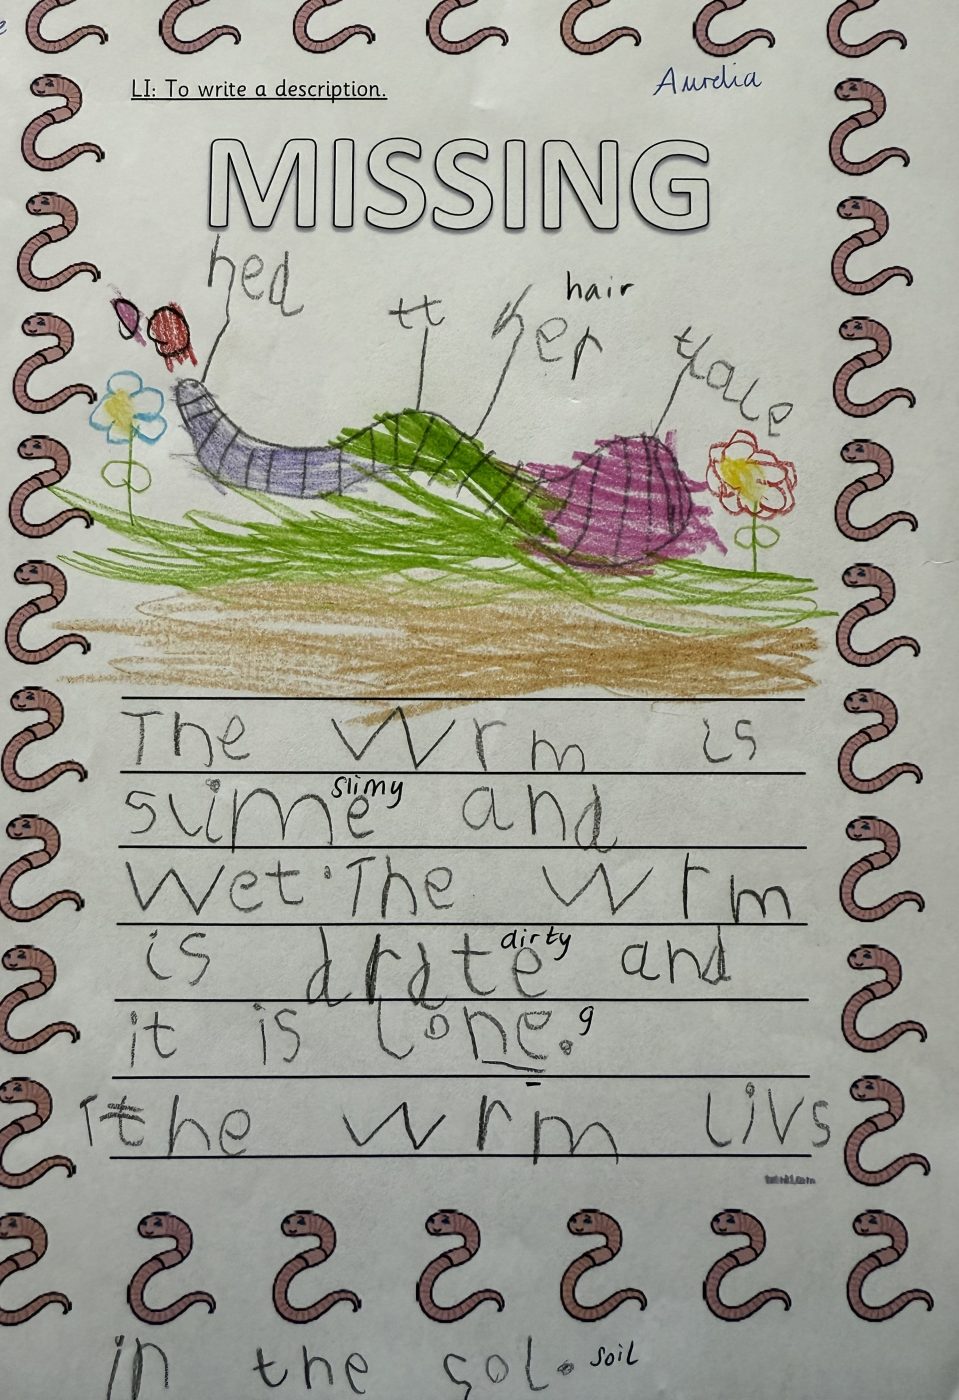 LI: To write a description.
Aurelia
MISSING
hed
tt
hair
her
tale
The wrm is
slime slimy and
wet. The wrm
is drdte dirty and
it is lone. g
Tthe wrm livs
in the sol. soil